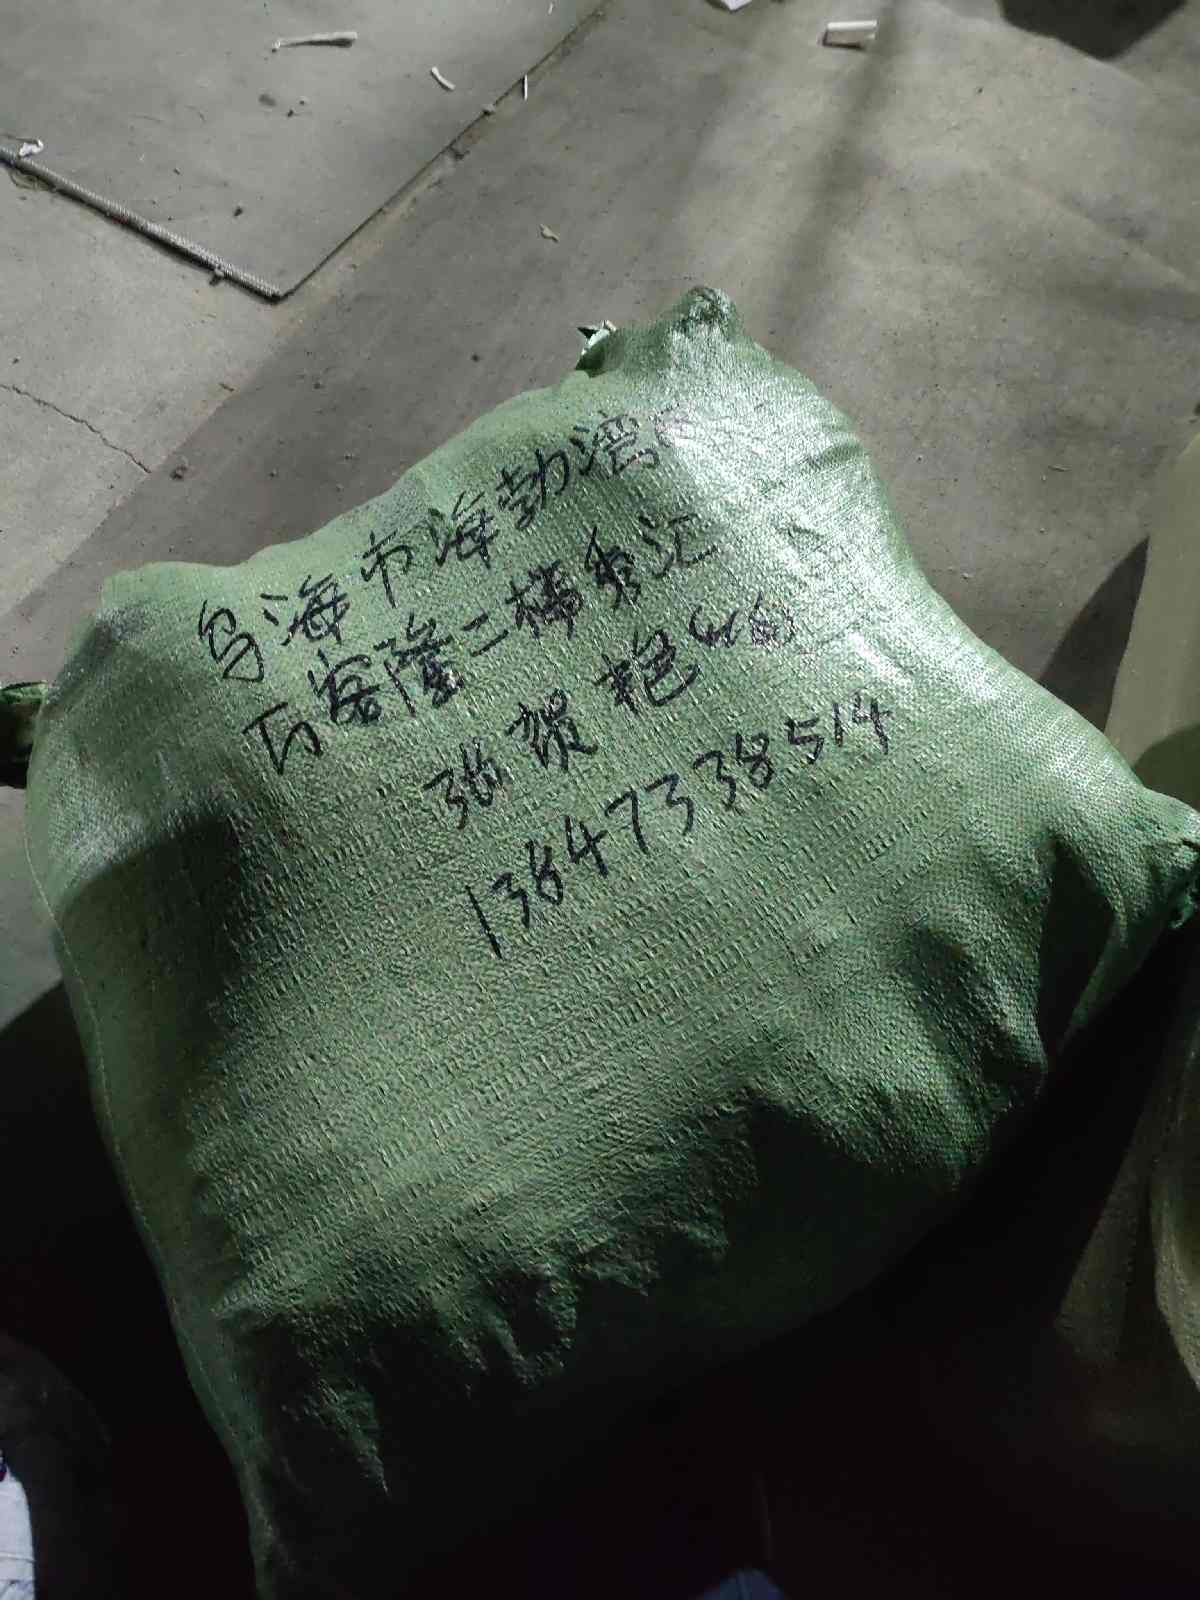 乌海市海勃湾区
万客隆二楼秀汇
张贺艳
13847338514